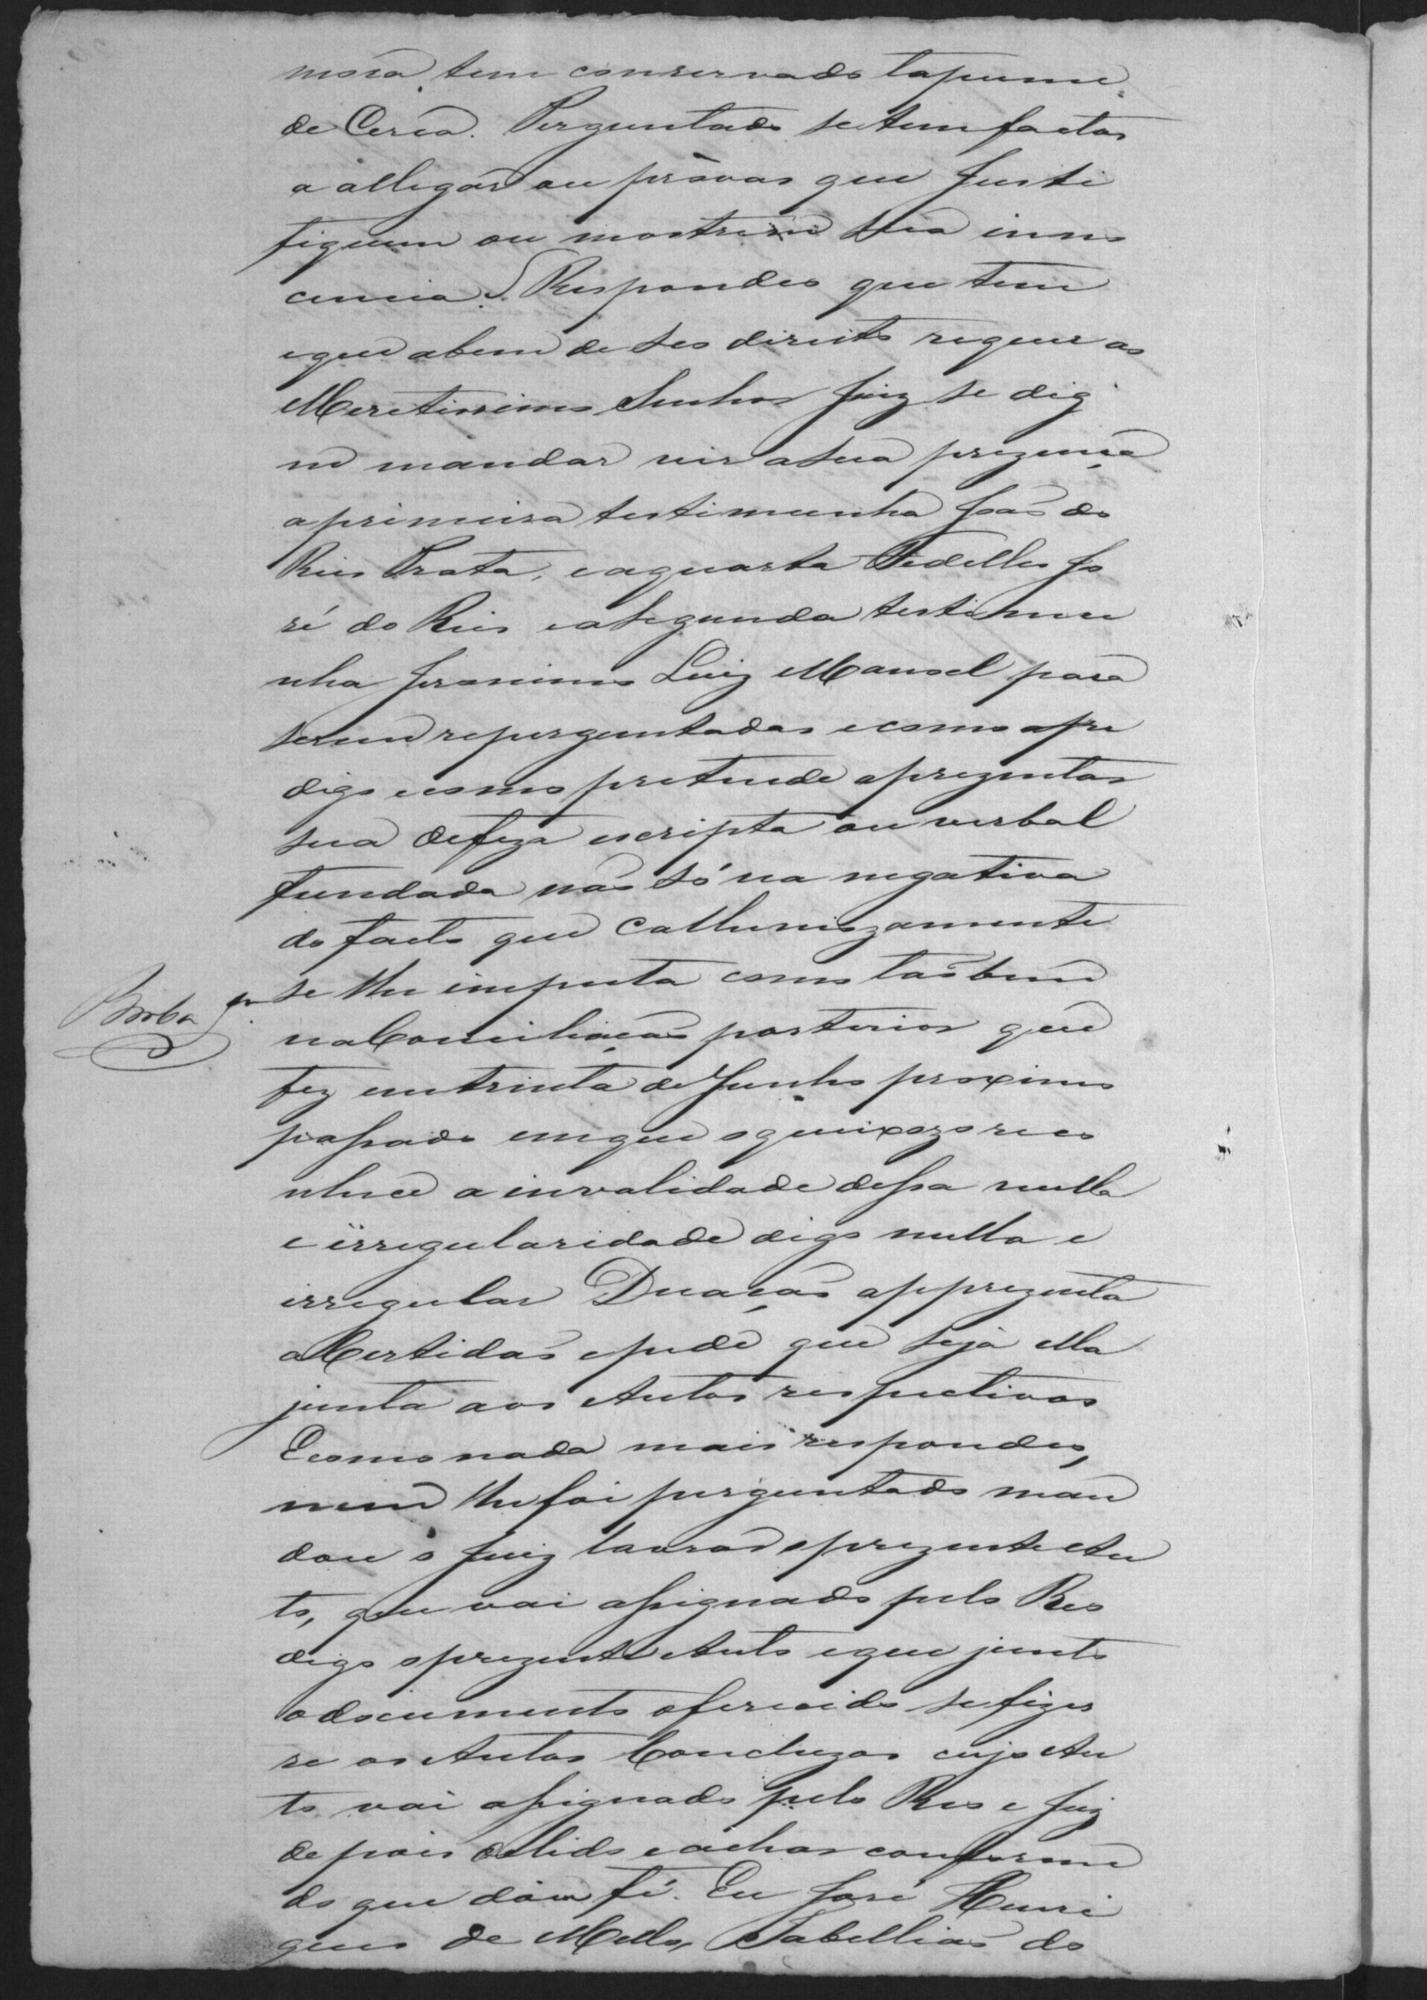 mora tem conservado tapume
de Cerca. Perguntado se tem factos
a allegar ou provas que Justi
fiquem ou mostrem sua inno
cencia? Respondeo que tem
e que abem de seo direito requer ao
Meretissimo Senhor Juiz se dig
ne mandar vir a sua prezença
a primeira testimunha João do
Reis Prata, e a quarta Fidellis Jo
zé do Reis e a segunda testimu
nha Jeronimo Luiz Manoel para
serem reperguntadas e como apre
digo e como pretende aprezentar
sua defeza escripta ou verbal
fundada não só na negativa
do facto que calluniozamente
se lhe imputa como tão bem
na Conciliação posterior que
fez em trinta de Junho proximo
passado em que o queixozo reco
nhece a invalidade dessa nulla
e irregularidade digo nulla e
irregular Doação apprezenta
a Certidão e pede que seja ella
junta aos Autos respectivos
E como nada mais respondeo,
nem lhe foi perguntado man
dou o Juiz lavrar o prezente Au
to, que vai assignado pelo Reo
digo o prezente Auto e que junto
o documento oferecido se fizes
se os Autos Concluzos cujo Au
to vai assignado pelo Reo e Juiz
depois de lido e achar conforme
do que dou fé. Eu José Henri
ques de Mello, Tabellião do
Borba Jor